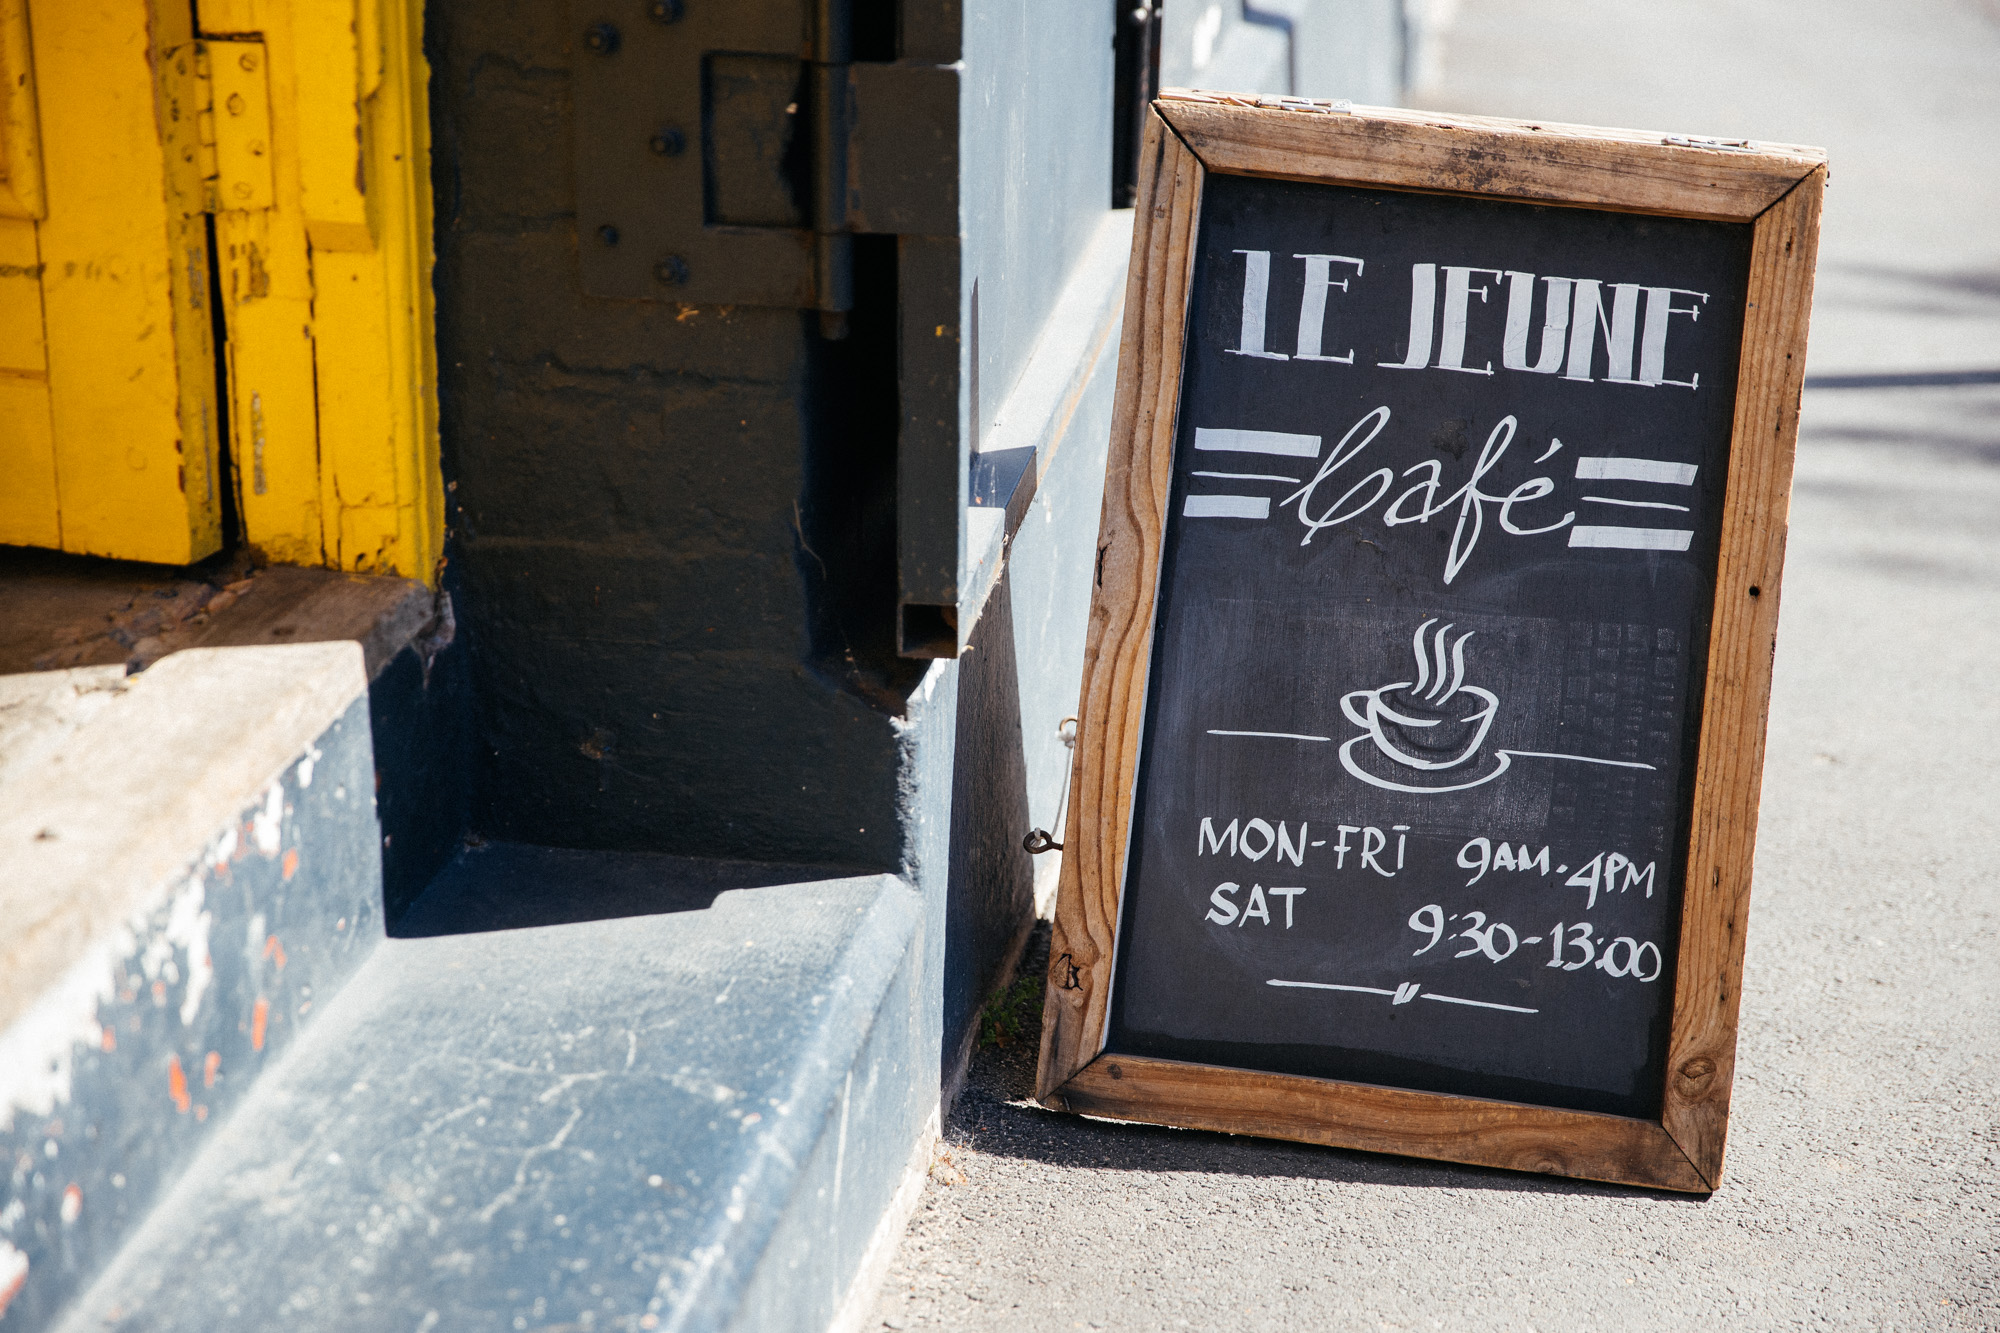 LE JEUNE
Café
MON-FRI 9AM-4PM
SAT 9:30-13:00